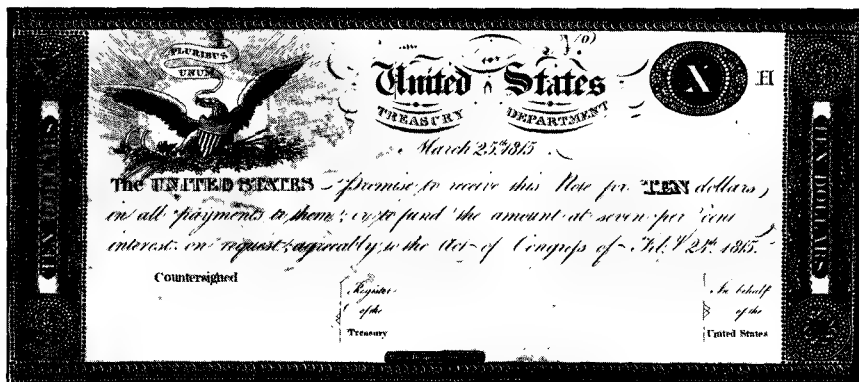 PLURIBUS
UNUM
United States
TREASURY DEPARTMENT
X
H
March 25th 1815
The UNITED STATES promise to receive this Note for TEN dollars,
in all payments to them; or to fund the amount at seven per Cent
interest, on request, agreeably to the Act of Congress of Feb.y 24th 1815.
Countersigned
Register
of the
Treasury
In behalf
of the
United States
TEN DOLLARS
TEN DOLLARS